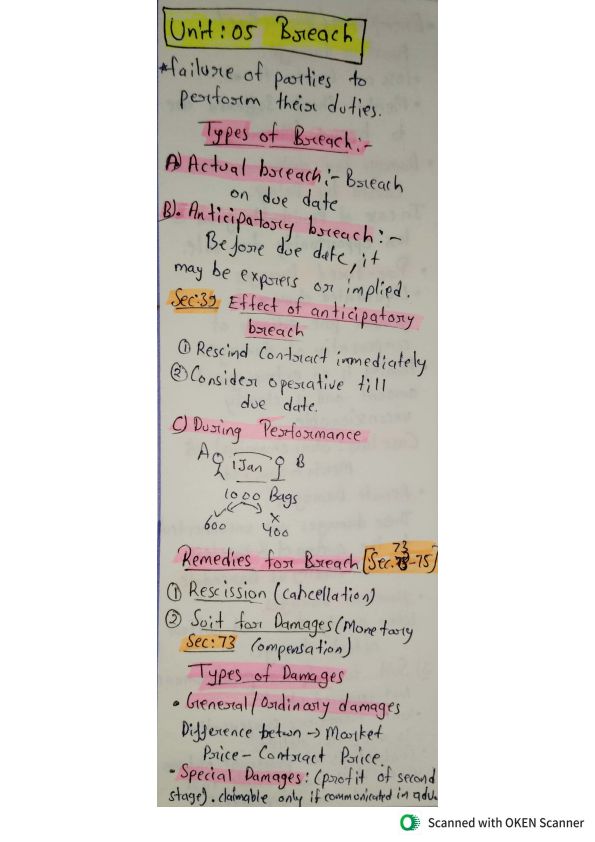 Unit: 05 Breach
*failure of parties to
perform their duties.
Types of Breach:-
A) Actual breach:- Breach
on due date
B). Anticipatory breach:-
Before due date, it
may be express or implied.
Sec:39 Effect of anticipatory
breach
① Rescind Contract immediately
② Consider operative till
due date.
C) During Performance
A 1 Jan B
1000 Bags
✓ x
600 400
Remedies for Breach [Sec. 73-75]
① Rescission (cancellation)
② Suit for Damages (Monetary
Sec: 73 Compensation)
Types of Damages
• General/Ordinary damages
Difference betwn → Market
Price - Contract Price.
• Special Damages: (profit of second
stage). claimable only if communicated in adv
Scanned with OKEN Scanner